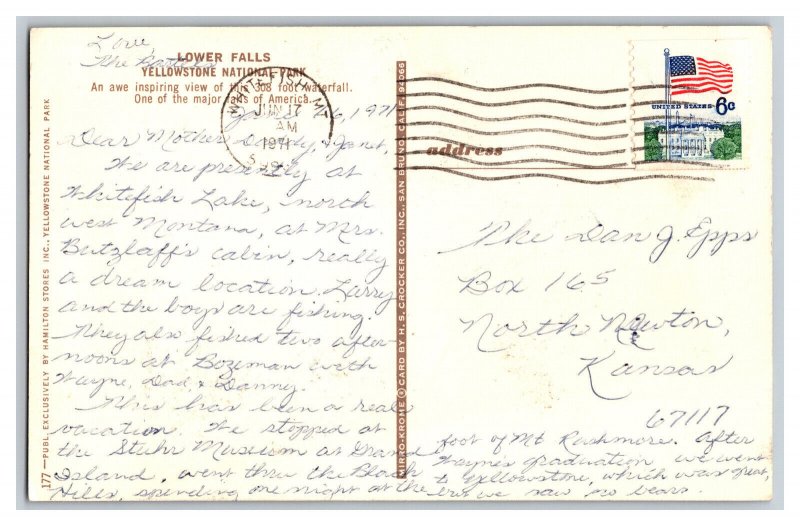 LOWER FALLS
YELLOWSTONE NATIONAL PARK
An awe inspiring view of this 308 foot waterfall.
One of the major falls of America.
16, 1971
Dear Mother, Daddy, & Janet,
We are presently at
Whitefish Lake, north
west Montana, at Mrs.
Butzlaff's cabin, really
a dream location. Larry
and the boys are fishing.
They also fished two after-
noons at Bozeman with
Wayne, Dad, & Danny.
This has been a real
vacation. We stopped at
the Stuhr Museum at Grand
Island, went thru the Black
Hills, spending one night at the
foot of Mt Rushmore. After
Wayne's graduation we went
to Yellowstone, which was great,
but we saw no bears.
Love,
The
177—PUBL. EXCLUSIVELY BY HAMILTON STORES INC., YELLOWSTONE NATIONAL PARK
MIRRO-KROME ® CARD BY H. S. CROCKER CO., INC., SAN BRUNO, CALIF. 94066
WHITEFISH, MT
JUN 17
AM
1971
UNITED STATES 6c
address
The Dan J. Epps
Box 165
North Newton,
Kansas
67117